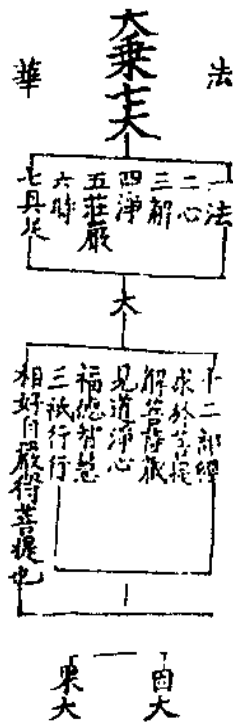 大乗七大
法
華
一法
二心
三解
四淨
五莊嚴
六時
七具足
大
十二部經
求於菩提
解菩薩藏
見道淨心
福德智慧
三祇行行
相好自嚴得菩提也
因大
果大